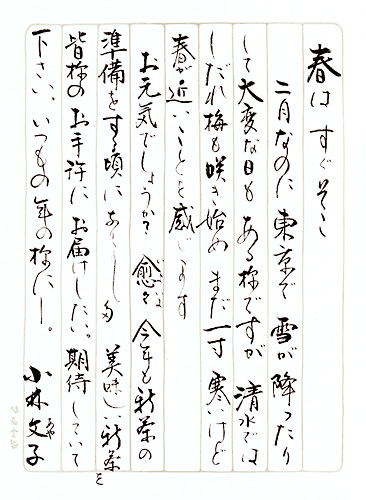 春は すぐそこ
二月なのに 東京で 雪が 降ったり
して 大変な日も ある様ですが 清水では
しだれ梅も 咲き始め まだ一寸 寒いけど
春が近いことを感じます
お元気でしょうか? 愈々 今年も新茶の
準備をする頃に なりました 美味しい新茶を
皆様の お手許に お届けしたい。期待していて
下さい、いつもの年の様に―。
小林文子
あや